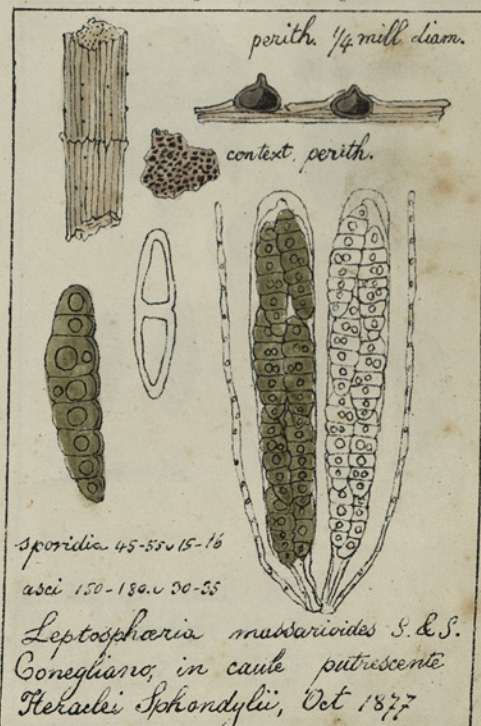 perith. 1/4 mill diam.
context. perith.
sporidia 45-55 ᴗ 15-16
asci 150-180. ᴗ 30-35
Leptosphæria massarioides S. & S.
Conegliano, in caule putrescente
Heraclei Sphondylii, Oct 1877